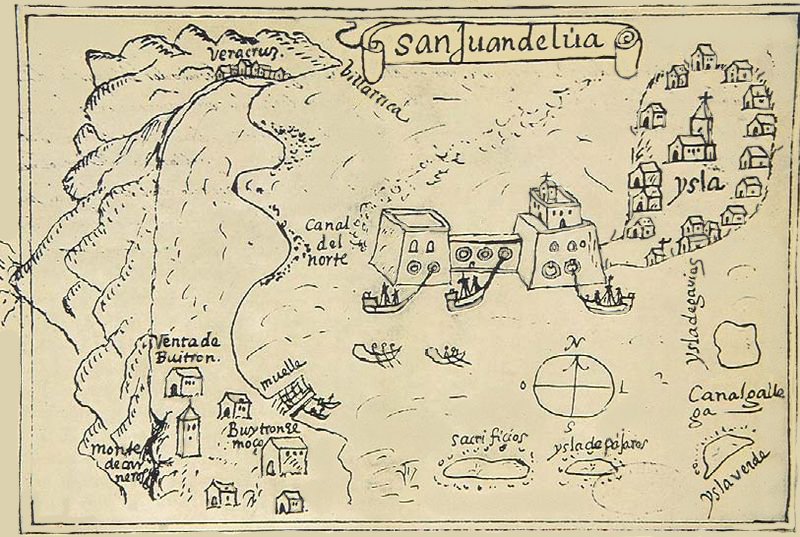 san Juan de lúa
veracruz
billarrica
ysla
Canal
del
norte
ysla de gavias
Venta de
Buitron.
muelle
N
O
L
S
Canal galle
ga
Buytron el
moço
monte
de car
neros
sacrificios
ysla de pájaros
ysla verde